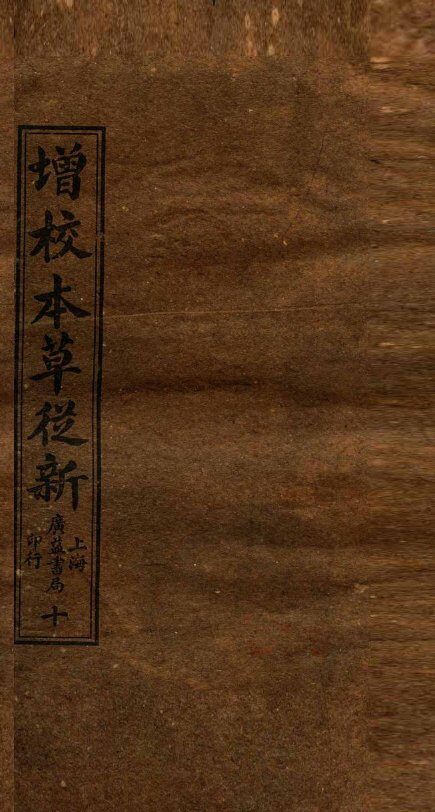 增校本草從新
上海
廣益書局
印行
十